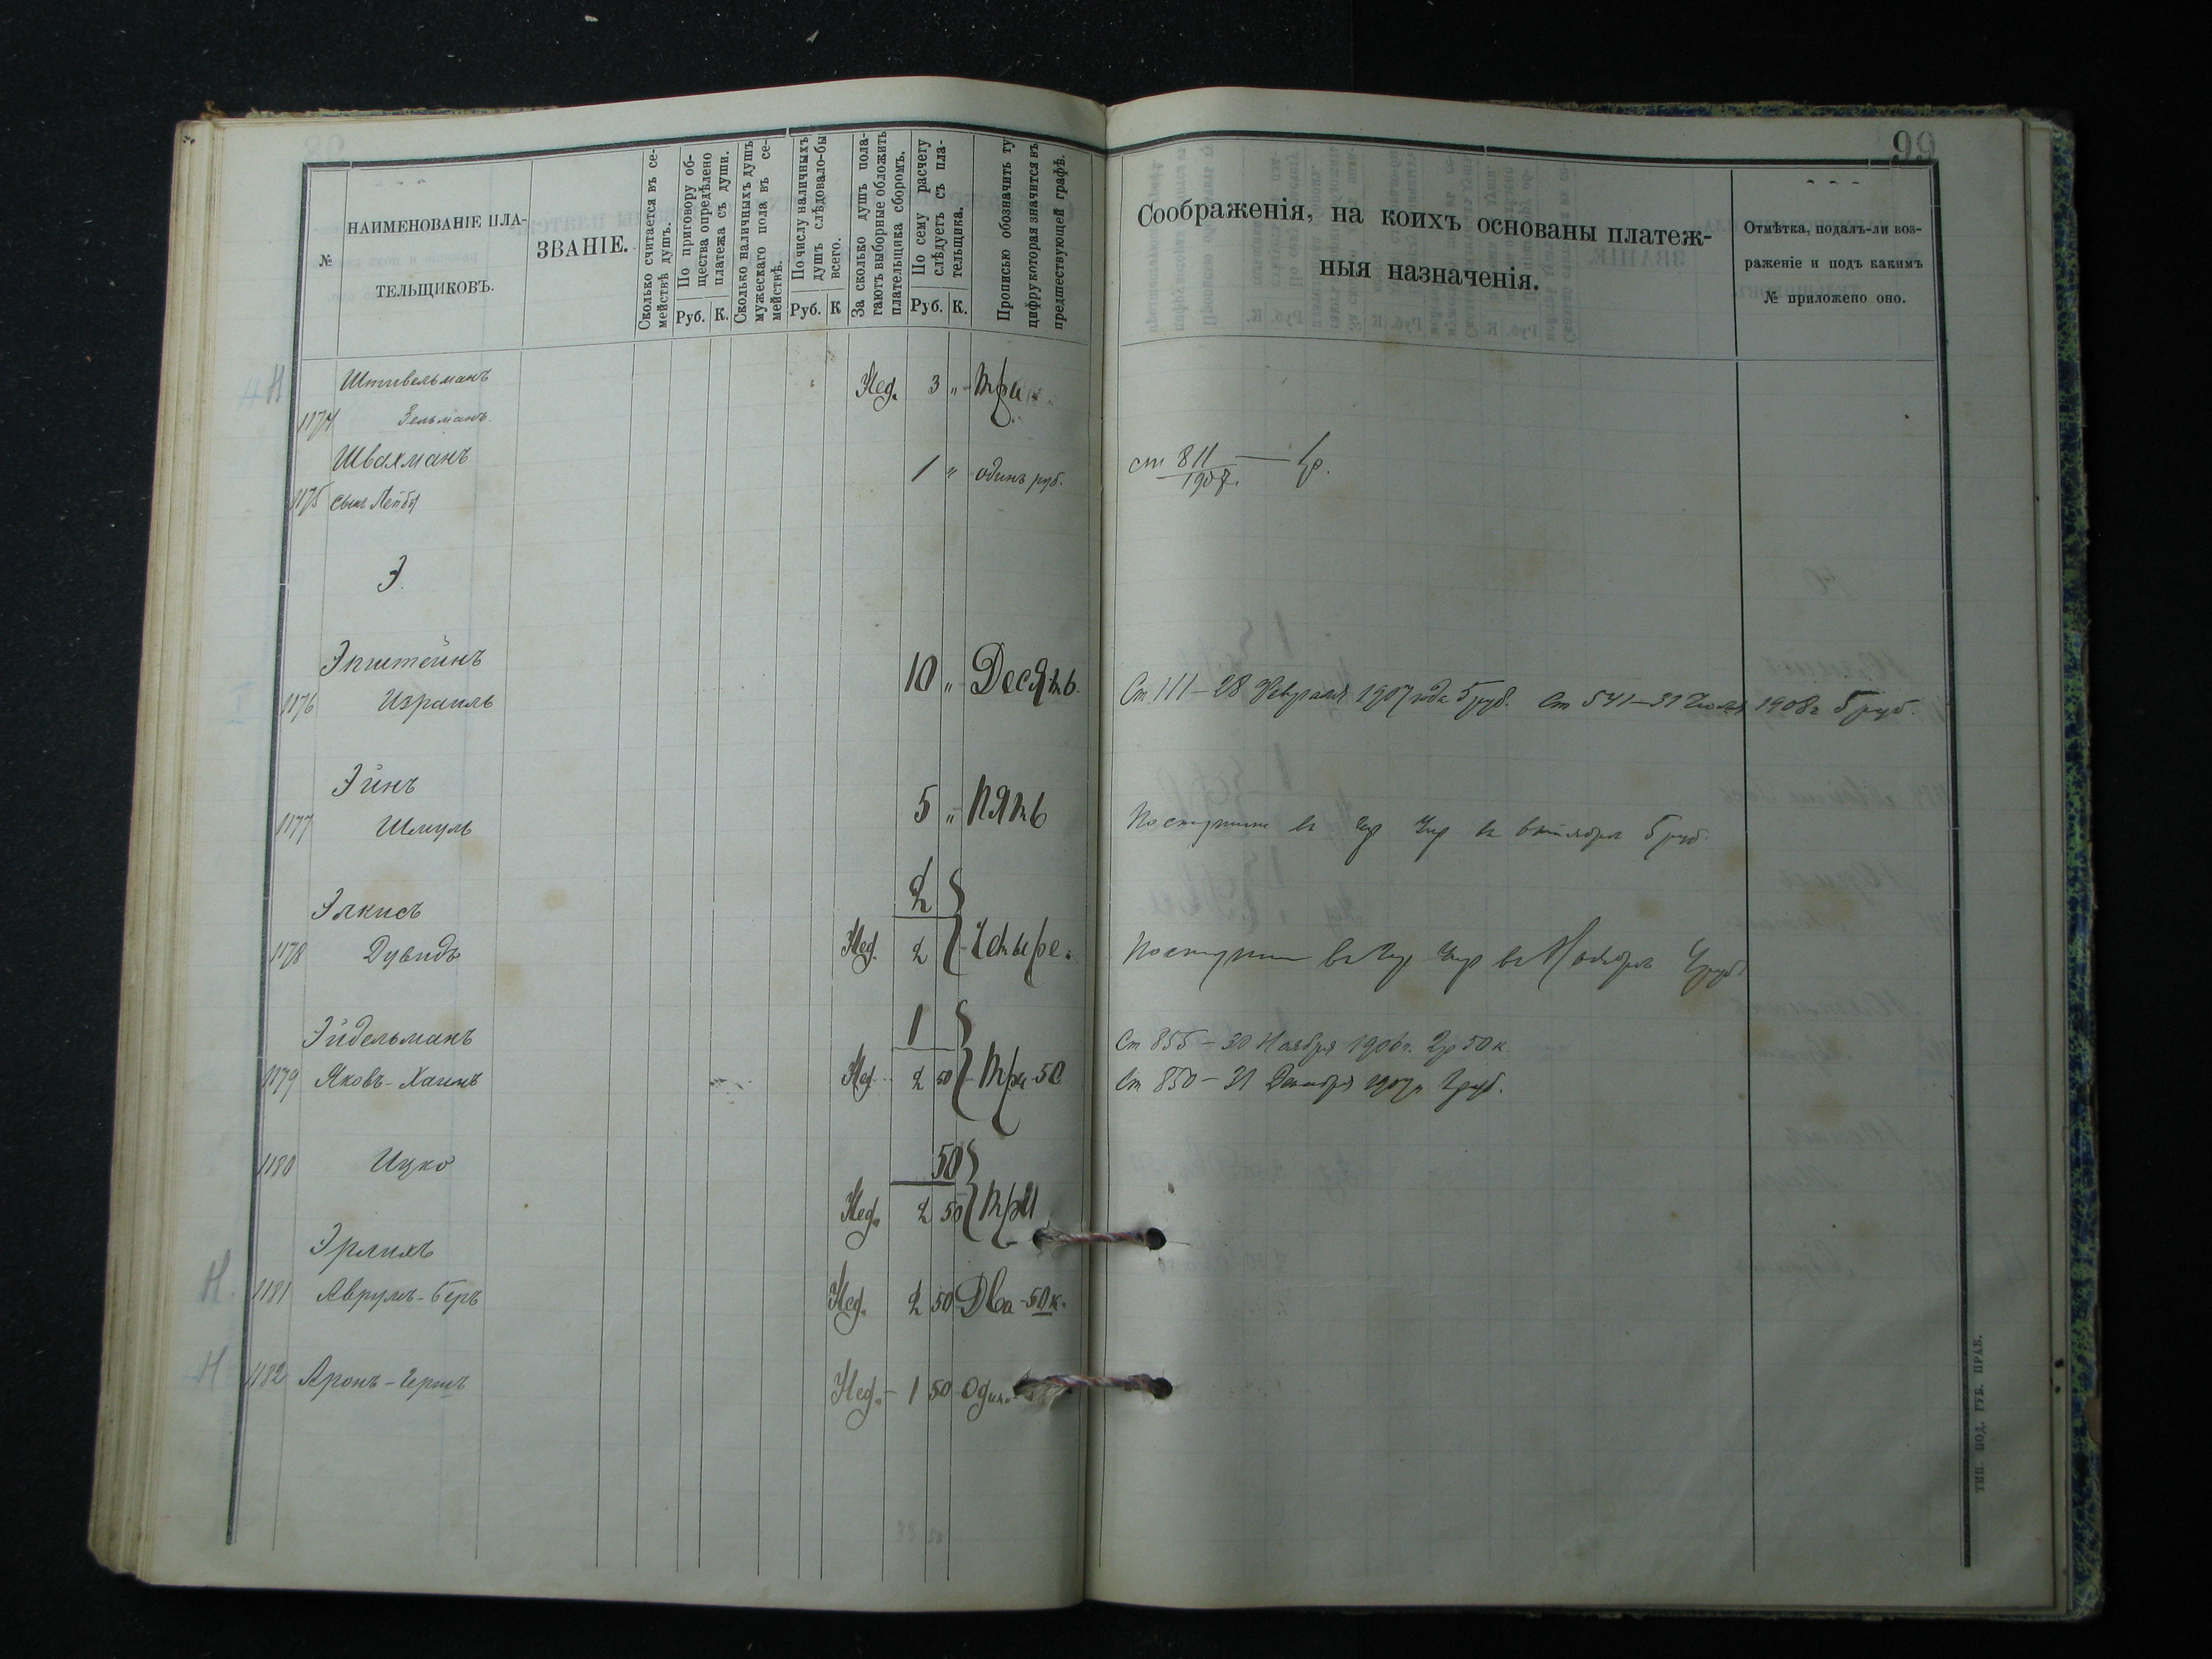 99
№
НАИМЕНОВАНІЕ ПЛА-
ТЕЛЬЩИКОВЪ.
ЗВАНІЕ.
Сколько считается въ се-
мействѣ душъ.
По приговору об-
щества опредѣлено
платежа съ души.
Руб. К.
Сколько наличныхъ душъ
мужескаго пола въ се-
мействѣ.
По числу наличныхъ
душъ слѣдовало-бы
всего.
Руб. К
За сколько душъ пола-
гаютъ выборные обложить
плательщика сборомъ.
По сему расчету
слѣдуетъ съ пла-
тельщика.
Руб. К.
Прописью обозначить ту
цифру которая значится въ
предшествующей графѣ.
Соображенія, на коихъ основаны платеж-
ныя назначенія.
Отмѣтка, подалъ-ли воз-
раженіе и подъ какимъ
№ приложено оно.
Н Штивельманъ Нед. 3 " Три
1174 Зельманъ.
Швахманъ 1 " одинъ руб. ст 811 — 1р.
1907г.
1175 сынъ Лейбы
Э.
Эпштейнъ 10 " Десять.
1176 Израиль Ст 111 – 28 Февраля 1907 года 5 руб. Ст 541 – 31 Июля 1908 г 5 руб.
Эйнъ 5 " Пять
1177 Шмуль Поступили в октября 5 руб.
2
Элкисъ
1178 Дувидъ Нед. 2 Четыре.
Ноября 4 руб
1
Эйдельманъ Ст 855 – 30 Ноября 1906 г. 2 р 50 к.
1179 Яковъ-Хаимъ Нед. 2 50 Три 50 Ст 850 – 31 Декабря 1907 г 1 руб.
1180 Ицко 50
Нед. 2 50 Три
Эрлихъ
Н. 1181 Аврумъ-Беръ Нед. 2 50 Два 50 к.
Н 1182 Аронъ-Гершъ Нед. – 1 50 Один
33 50
ТИП. ПОД. ГУБ. ПРАВ.